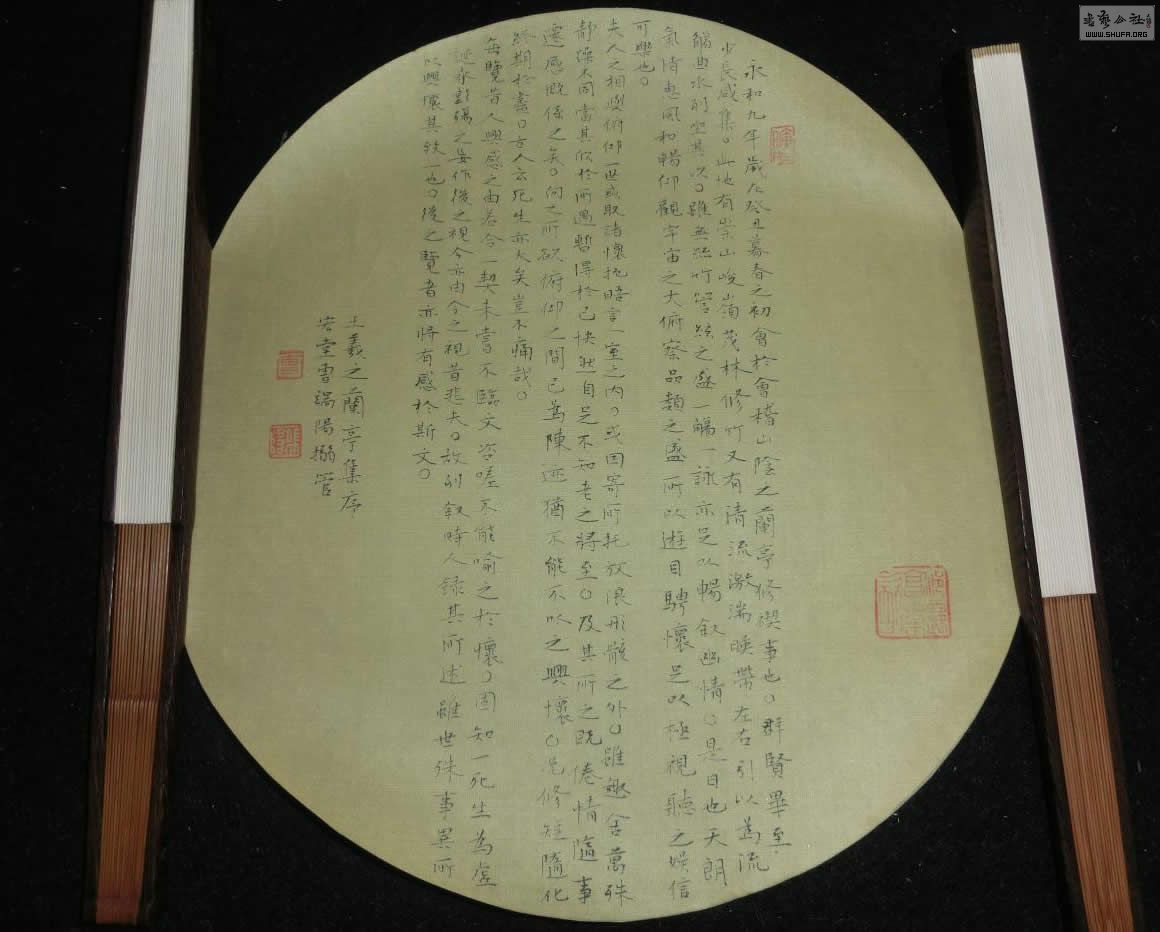 永和九年歲在癸丑暮春之初會於會稽山陰之蘭亭修禊事也。群賢畢至
少長咸集。此地有崇山峻嶺茂林修竹又有清流激湍暎帶左右引以為流
觴曲水列坐其次。雖無絲竹管絃之盛一觴一詠亦足以暢敘幽情。是日也天朗
氣清惠風和暢仰觀宇宙之大俯察品類之盛所以遊目騁懷足以極視聽之娛信
可樂也。
夫人之相與俯仰一世或取諸懷抱晤言一室之內。或因寄所托放浪形骸之外。雖趣舍萬殊
靜躁不同當其欣於所遇暫得於己快然自足不知老之將至。及其所之既倦情隨事
遷感慨係之矣。向之所欣俯仰之間已為陳迹猶不能不以之興懷。況修短隨化
終期於盡。古人云死生亦大矣豈不痛哉。
每覽昔人興感之由若合一契未嘗不臨文咨嗟不能喻之於懷。固知一死生為虛
誕齊彭殤之妄作後之視今亦由今之視昔悲夫。故列敘時人錄其所述雖世殊事異所
以興懷其致一也。後之覽者亦將有感於斯文。
王羲之蘭亭集序
堂曹端陽搦管
曹
書藝公社
WWW.SHUFA.ORG